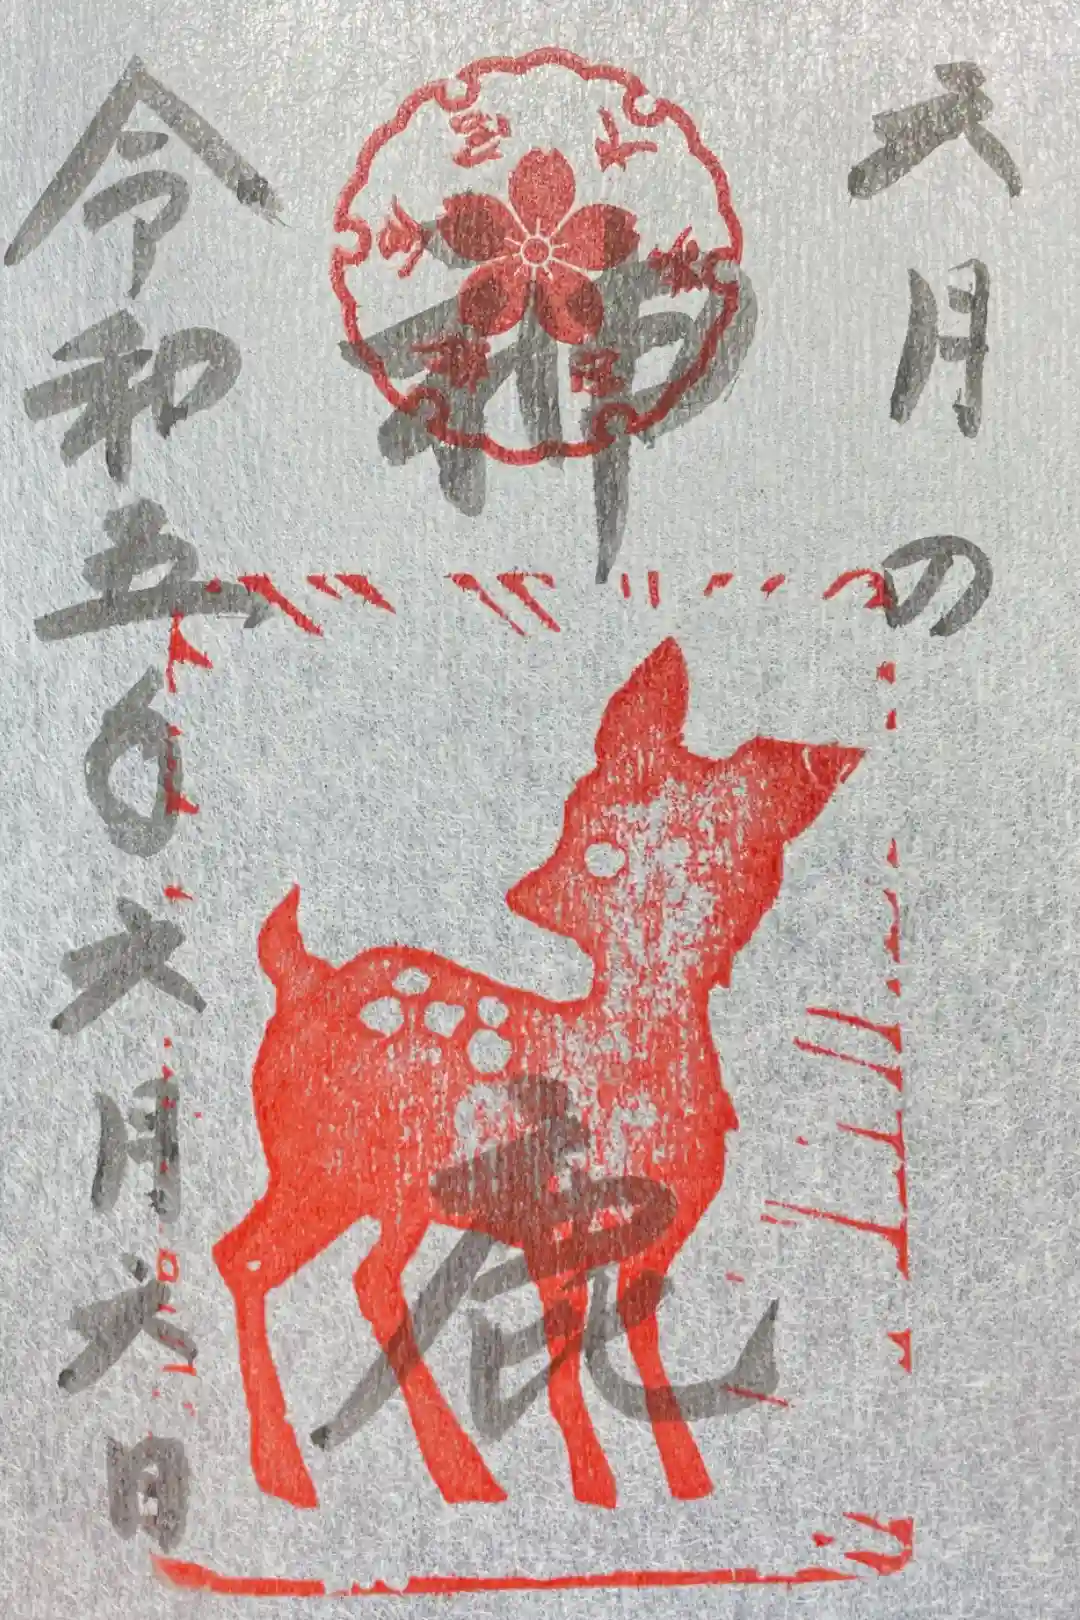 六月の
神鹿
令和五年六月六日